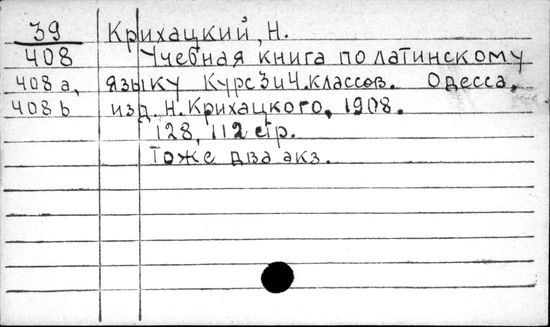 39 Крихацкий, Н.
408 Учебная книга по латинскому
408 а, языку Курс 3 и 4. классов. Одесса,
408 b изд. Н. Крихацкого, 1908.
128, 112 стр.
Тоже два акз.